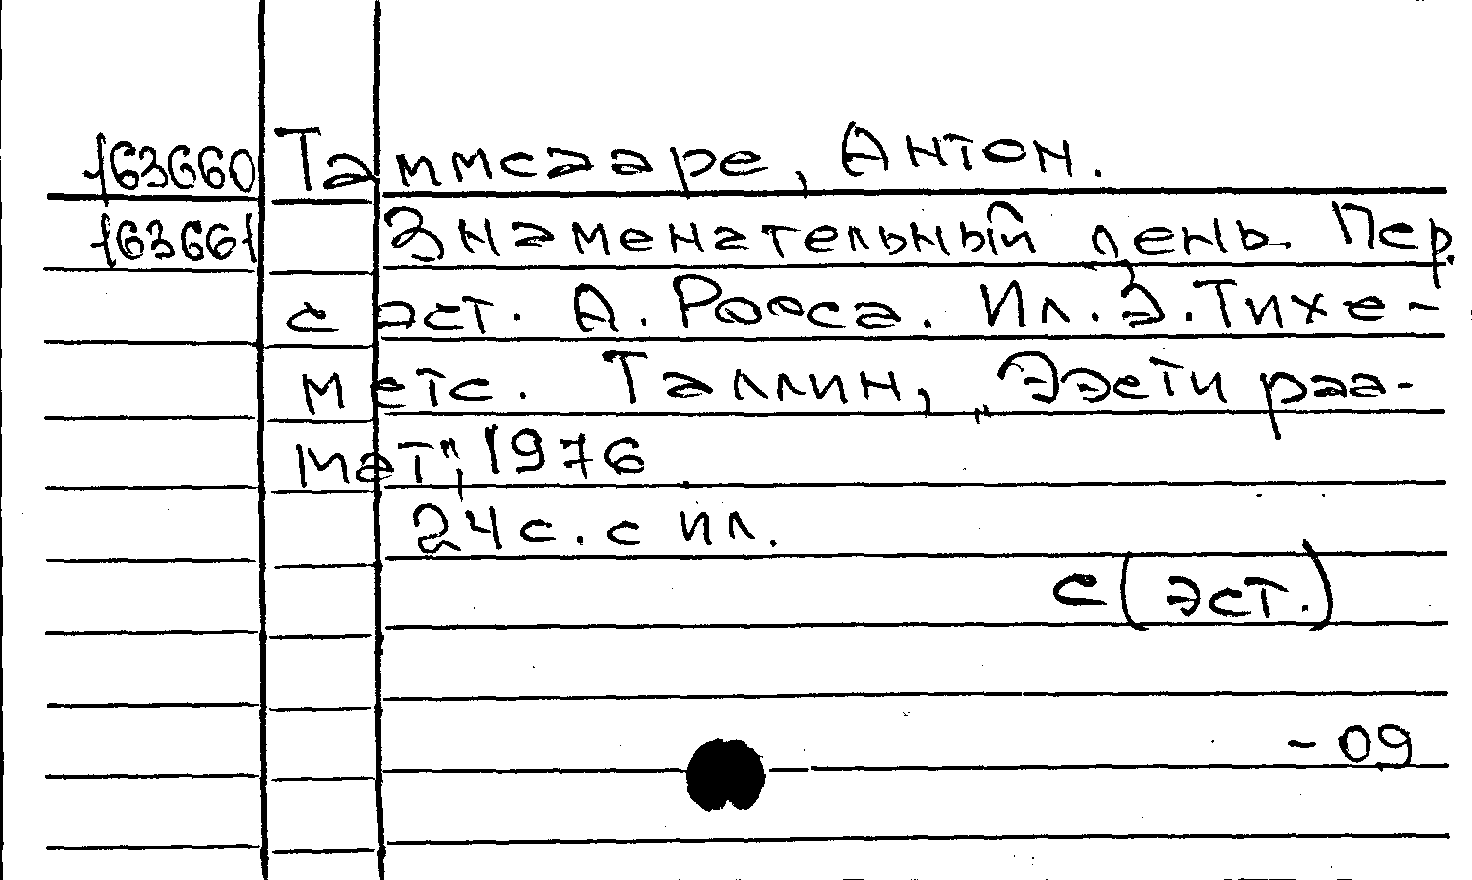 163660 Таммсааре, Антон.
163661 Знаменательный день. Пер.
с эст. А. Рооса. Ил. Э. Тихе-
метс. Таллин, „Ээсти раа-
мат", 1976
24 с. с ил.
С(эст.)
-09